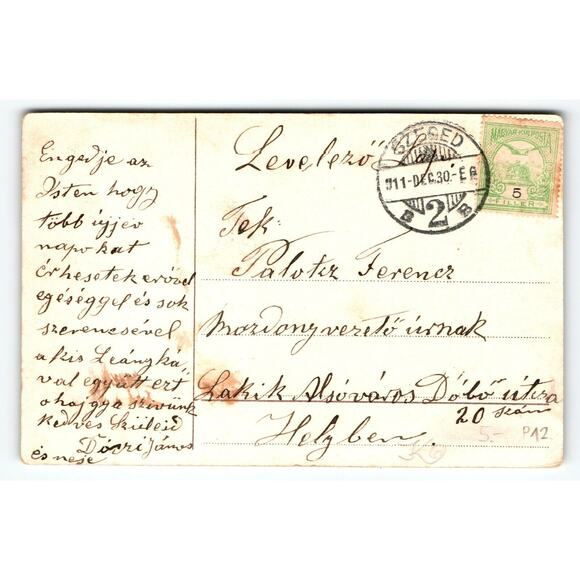 Engedje az
Isten hogy
több újjév
napokat
érhesetek erővel
egéséggel és sok
szerencsével
a kis Leányká,
val együtt ezt
ohajgya szivünk
kedves Szüleid
Dóczi János
és neje
Levelező
SZEGED
911-DEC.30.-E 6
B 2 B
MAGYAR KIR. POSTA
5
FILLÉR
Tek:
Palotz Ferencz
Mozdonyvezető úrnak
Lakik Alsóváros Dobó útcza
20 szám
Helyben.
5.-
P12